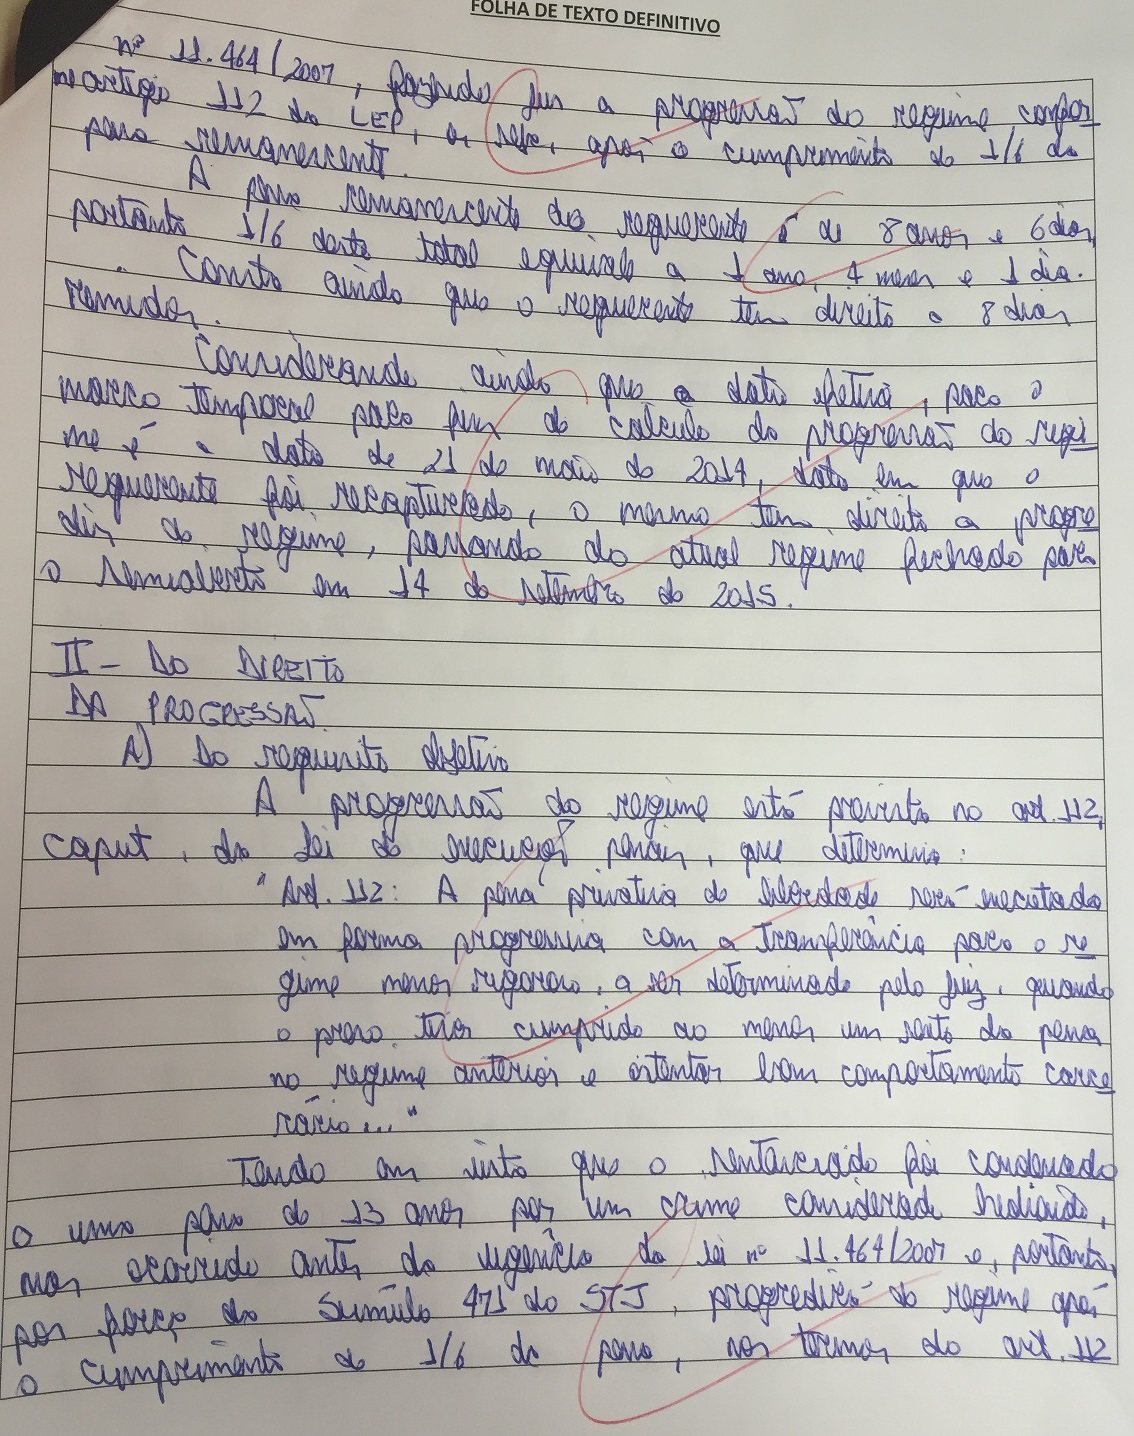 FOLHA DE TEXTO DEFINITIVO
nº 11.464/2007, fazendo jus a progressão do regime confor
me artigo 112 da LEP, ou seja, após o cumprimento de 1/6 da
pena remanescente.
A pena remanescente do requerente é de 8 anos e 6 dias,
portanto 1/6 deste total equivale a 1 ano, 4 meses e 1 dia.
Consta ainda que o requerente tem direito a 8 dias
remidos.
Considerando ainda que a data efetiva, para o
marco temporal para fins de cálculo da progressão do regi
me é a data de 21 de maio de 2014, data em que o
requerente foi recapturado, o mesmo tem direito a progre
dir de regime, passando do atual regime fechado para
o semiaberto em 14 de setembro de 2015.
II - DO DIREITO
DA PROGRESSÃO
A) Do requisito objetivo
A progressão do regime está prevista no art. 112,
caput, da Lei de execuções penais, que determina:
"Art. 112: A pena privativa de liberdade será executada
em forma progressiva com a transferência para o re
gime menos rigoroso, a ser determinada pelo juiz, quando
o preso tiver cumprido ao menos um sexto da pena
no regime anterior e ostentar bom comportamento carce
rário..."
Tendo em vista que o sentenciado foi condenado
a uma pena de 13 anos por um crime considerado hediondo,
mas ocorrido antes da vigência da lei nº 11.464/2007 e, portanto,
por força da Súmula 471 do STJ, progredirá de regime após
o cumprimento de 1/6 da pena, nos termos do art. 112